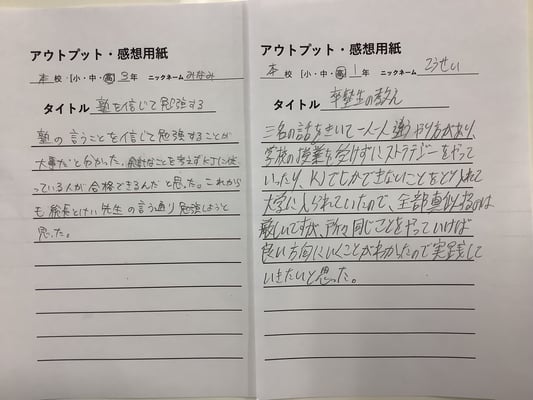 アウトプット・感想用紙
本 校・[小・中・高] 3年 ニックネーム みなみ
タイトル 塾を信じて勉強する
塾の言うことを信じて勉強することが
大事だと分かった。余計なことを考えずKJに従
っている人が合格できるんだと思った。これから
も塾長とけい先生の言う通り勉強しようと
思った。
アウトプット・感想用紙
本 校・[小・中・高] 1年 ニックネーム こうせい
タイトル 卒塾生の教え
三名の話をきいて一人一人違うやり方があり、
学校の授業も受けずにストラテジーをやって
いったり、KJでしかできないことをとり入れて
大学に入られていたので、全部真似するのは
厳しいですが、所々同じことをやっていけば
良い方向にいくことがわかったので実践して
いきたいと思った。